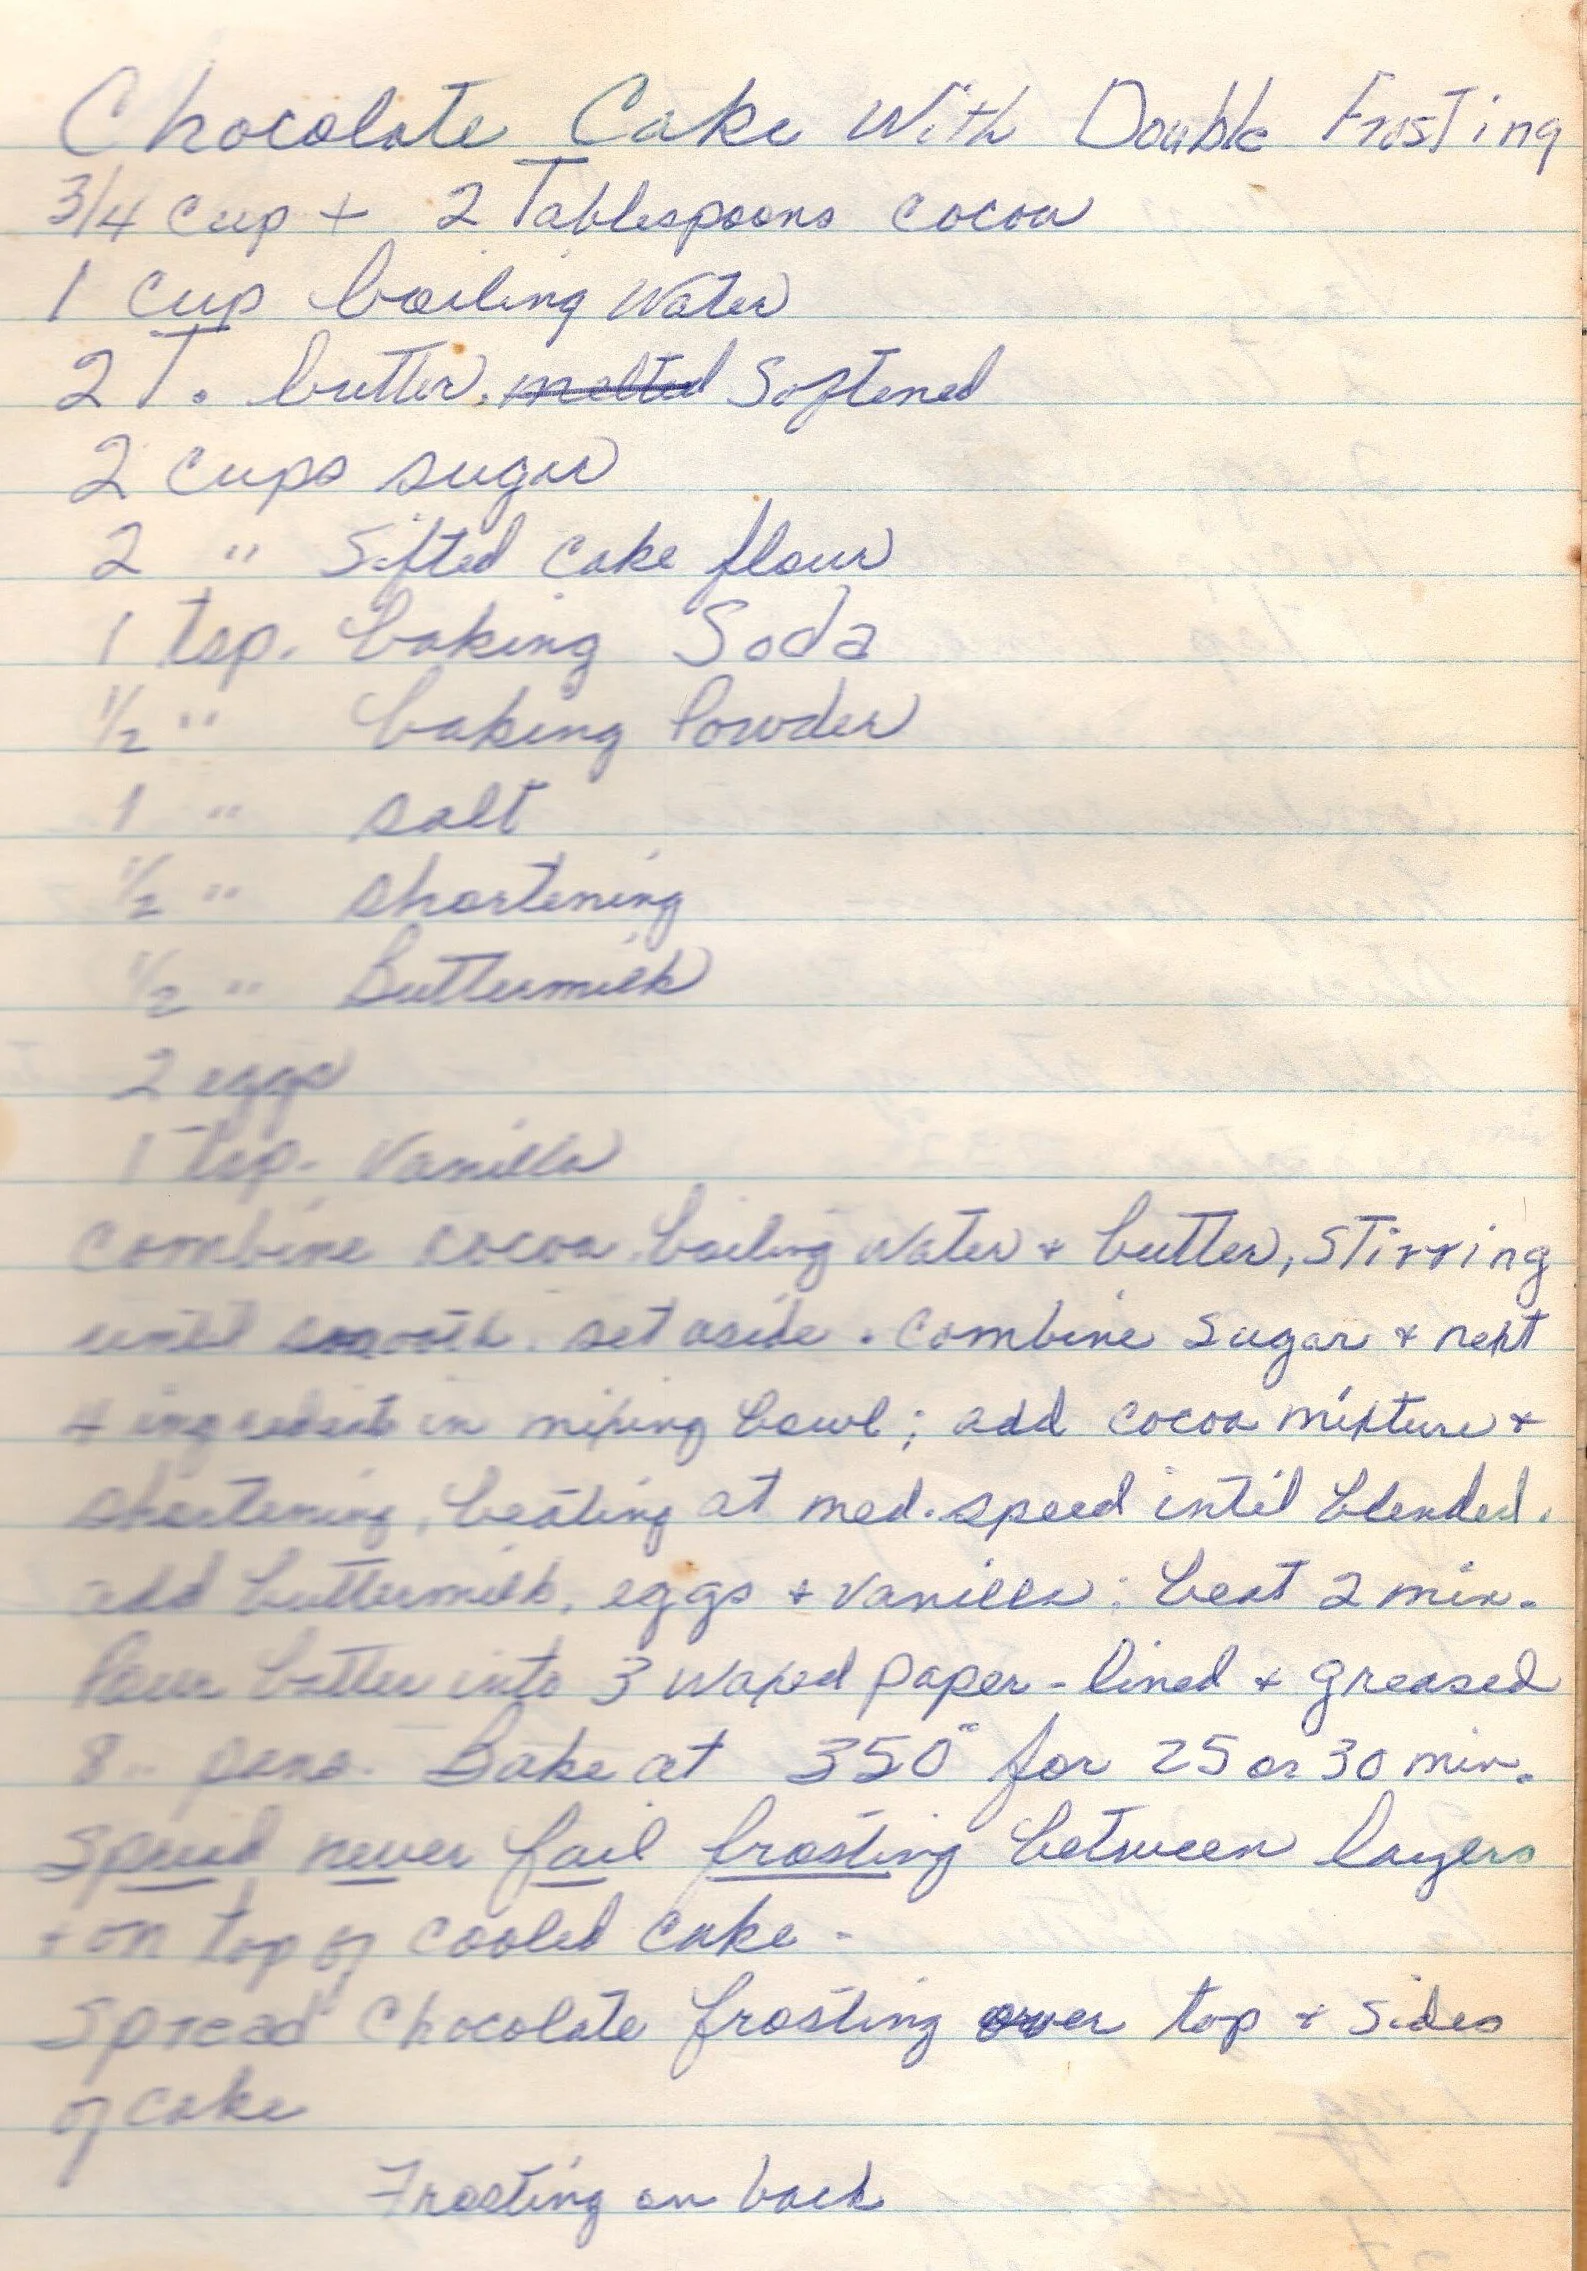 Chocolate Cake With Double Frosting
3/4 cup + 2 Tablespoons cocoa
1 cup boiling water
2 T. butter, melted Softened
2 cups sugar
2 " Sifted cake flour
1 tsp. baking Soda
1/2 " baking Powder
1 " salt
1/2 " shortening
1/2 " Buttermilk
2 eggs
1 tsp. Vanilla
Combine cocoa boiling water + butter, STirring
until smooth. set aside. Combine Sugar + next
4 ingredients in mixing bowl; add cocoa mixture +
shortening, beating at med. speed intil blended.
add buttermilk, eggs + vanilla; beat 2 min.
Pour batter into 3 waxed paper-lined + greased
8" pans. Bake at 350° for 25 or 30 min.
Spread never fail frosting between layers
+ on top of cooled cake.
Spread Chocolate frosting over top + sides
of cake
Frosting on back